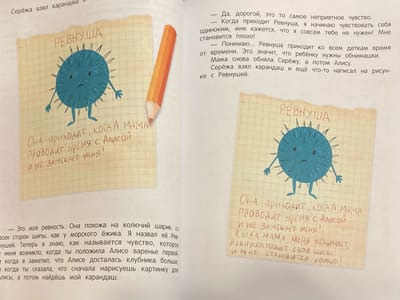 Серёжа взял карандаш и
РЕВНУША
Она приходит, когда мама
проводит время с Алисой
и не замечает меня!
— Это моя ревность. Она похожа на колючий шарик, с
всех сторон шипы, как у морского ёжика. Я назвал её Рев-
нушей. Теперь я знаю, как называется чувство, которое
у меня возникло, когда ты положила Алисе варенье первой
и когда я заметил, что Алисе досталась клубника больше
и когда ты сказала, что сначала нарисуешь картинку для
Алисы, а потом найдёшь мой карандаш.
— Да, дорогой, это то самое неприятное чувство.
— Когда приходит Ревнуша, я начинаю чувствовать себя
одиноким, мне кажется, что я совсем тебе не нужен! Мне
становится плохо!
— Понимаю... Ревнуша приходит ко всем деткам время
от времени. Это значит, что ребёнку нужны обнимашки.
Мама снова обняла Серёжу, а потом Алису.
Серёжа взял карандаш и ещё что-то написал на рисун-
ке с Ревнушей.
РЕВНУША
Она приходит, когда мама
проводит время с Алисой
и не замечает меня!
Когда мама меня обнимает,
Ревнуша прячет свои шипы
и мне становится хорошо!